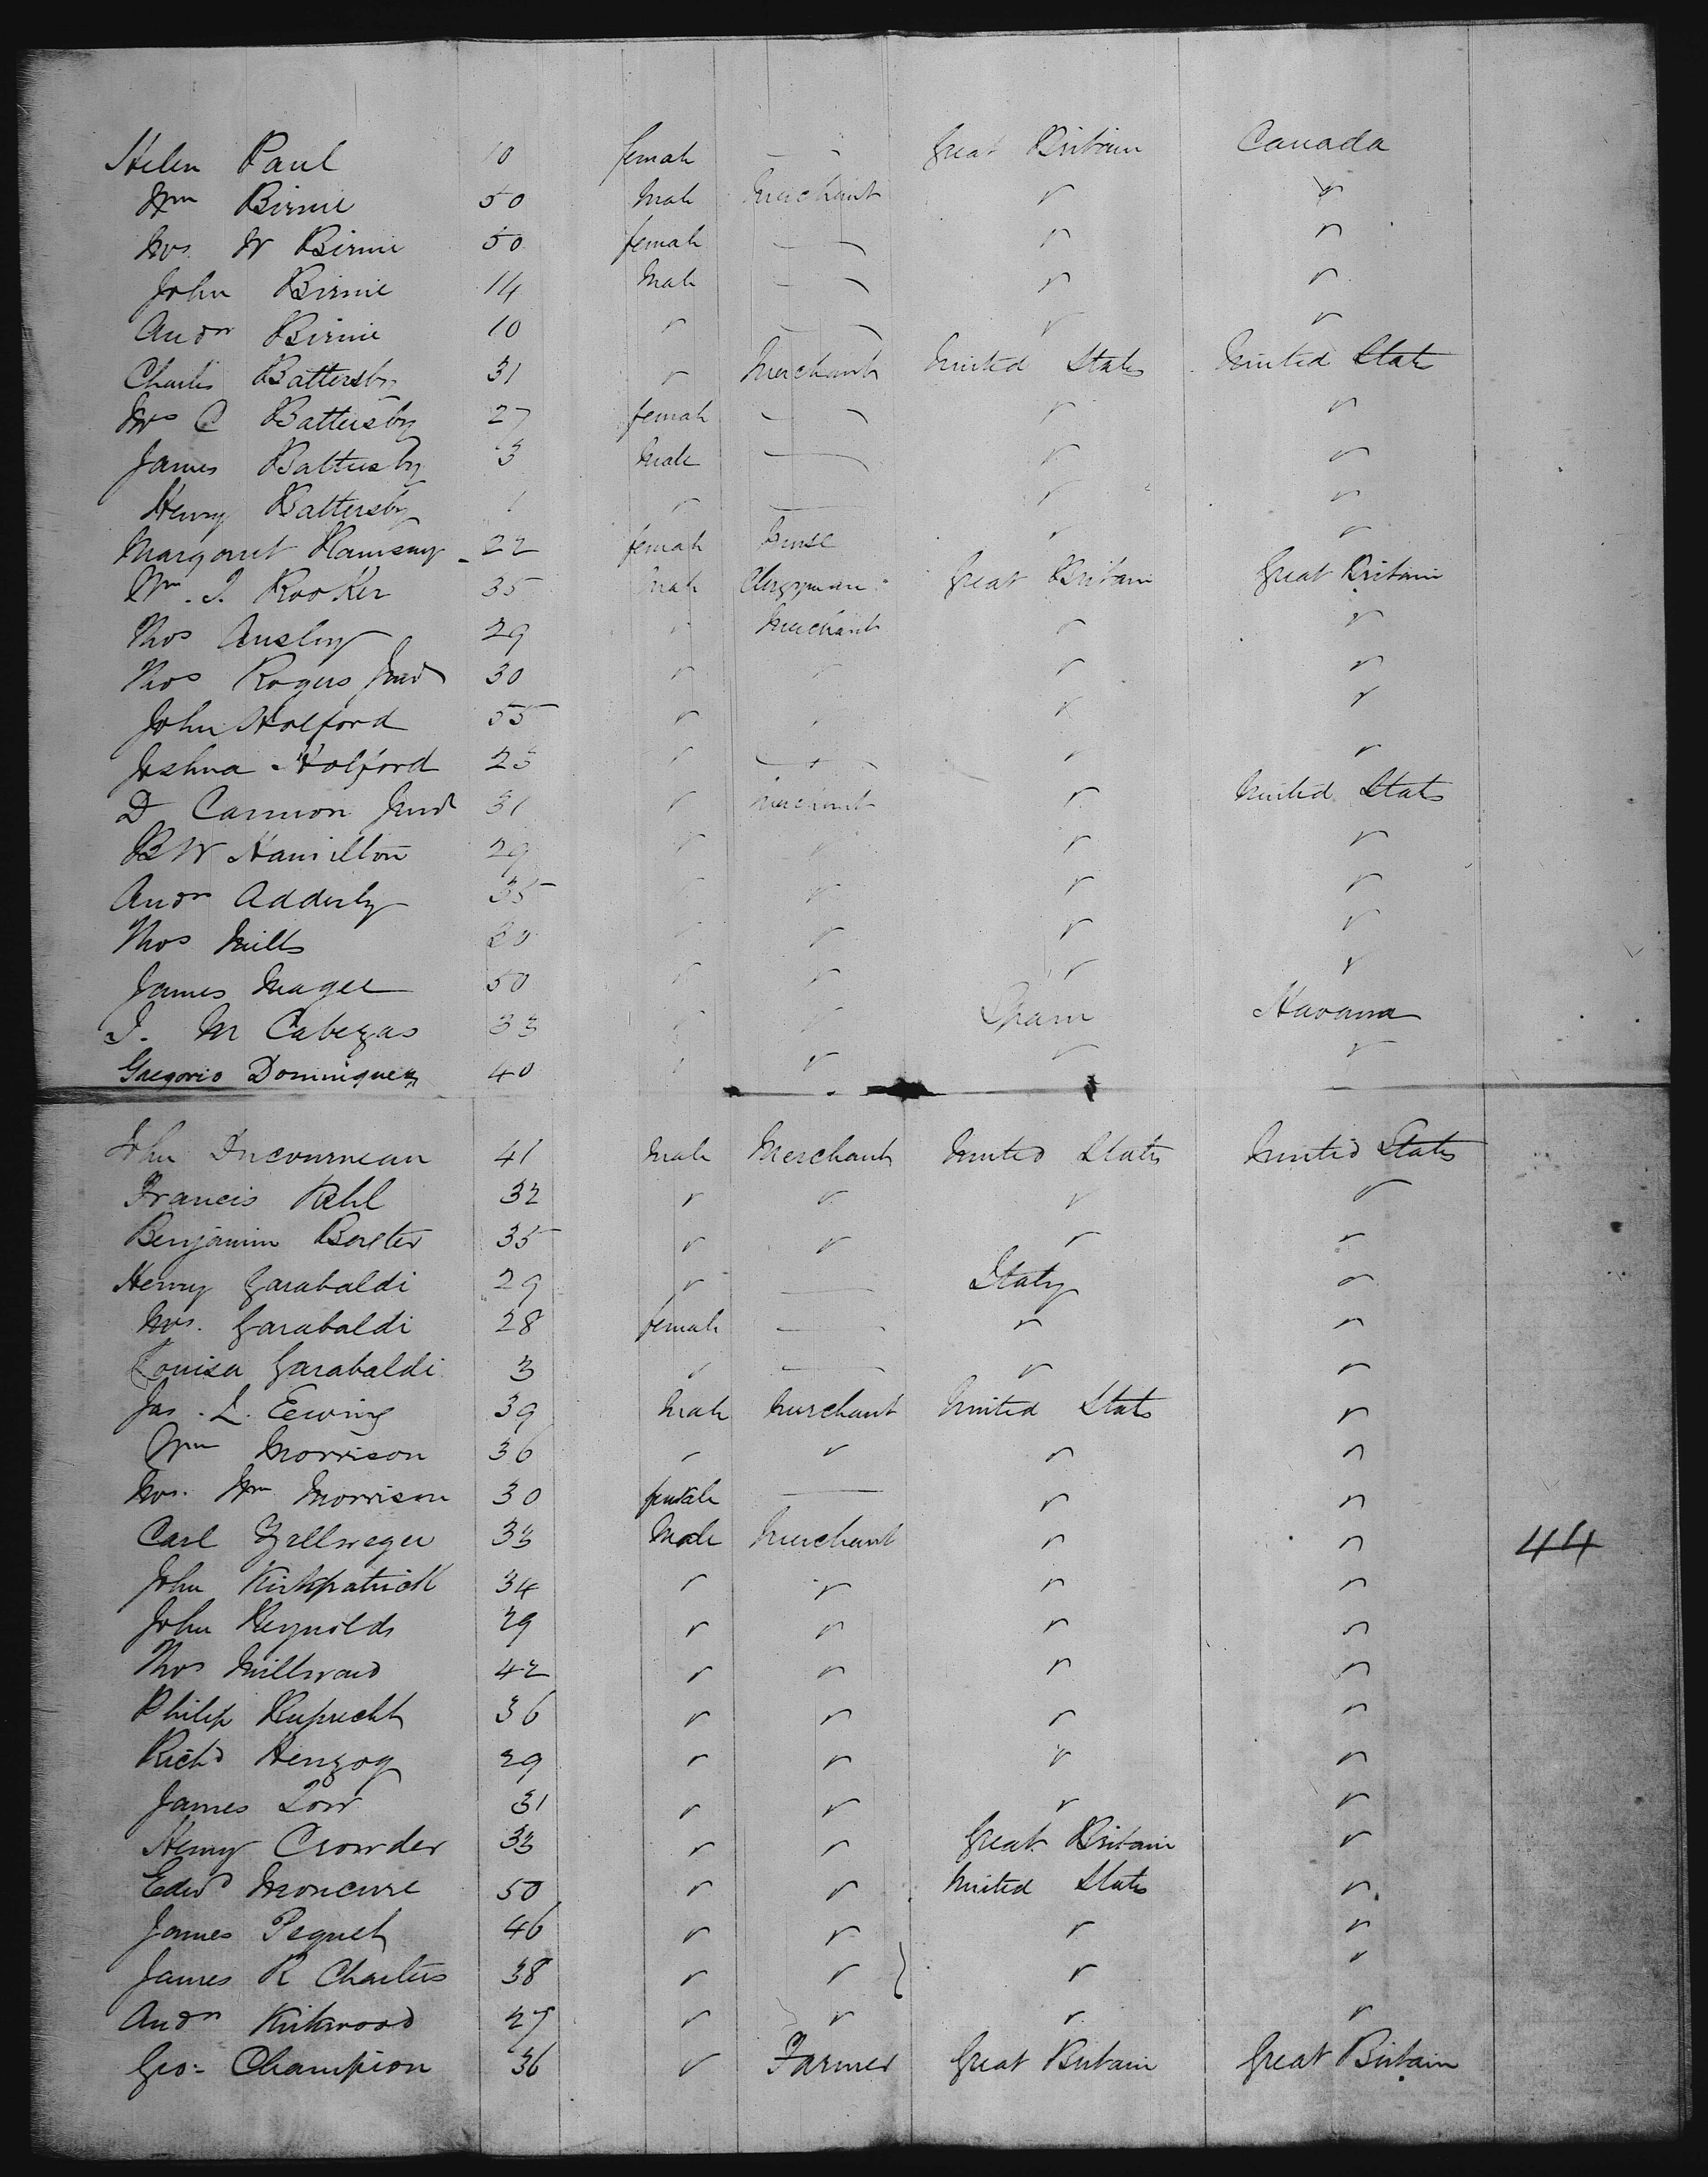 Helen Paul 10 female — Great Britain Canada
Wm Birnie 50 Male Merchant " "
Mrs. W Birnie 50 female — " "
John Birnie 14 Male — " "
Andw Birnie 10 " — " "
Charles Battersby 31 " Merchant United States United States
Mrs C Battersby 27 female — " "
James Battersby 3 Male — " "
Henry Battersby 1 " — " "
Margaret Ramsay 22 female Nurse " "
Wm. J. Rooker 35 Male Clergyman Great Britain Great Britain
Thos Ansley 29 " Merchant " "
Thos Rogers Junr 30 " " " "
John Holford 55 " " " "
Joshua Holford 23 " — " "
D Cannon Junr 31 " Merchant " United States
B W Hamilton 29 " " " "
Andw Adderly 35 " " " "
Thos Mills " " " "
James Magee 50 " " " "
J. M Cabezas 33 " " Spain Havana
Gregorio Dominguez 40 " " " "
John Ducournean 41 Male Merchant United States United States
Francis Kehl 32 " " " "
Benjamin 35 " " " "
Henry Garabaldi 29 " — Italy "
Mrs. Garabaldi 28 female — " "
Louisa Garabaldi 3 " — " "
Jas. L. Ewing 39 Male Merchant United States "
Wm Morrison 36 " " " "
Mrs. Wm Morrison 30 female — " "
Carl Zellweger 33 Male Merchant " " 44
John Kirkpatrick 34 " " " "
John Reynolds 29 " " " "
Thos Millward 42 " " " "
Philip Ruprecht 36 " " " "
Richd Herzog 29 " " " "
James Low 31 " " " "
Henry Crowder 33 " " Great Britain "
Edwd Moncure 50 " " United States "
James Pequet 46 " " " "
James R Charters 38 " " " "
Andw Kirkwood 27 " " " "
Geo= Champion 36 " Farmer Great Britain Great Britain